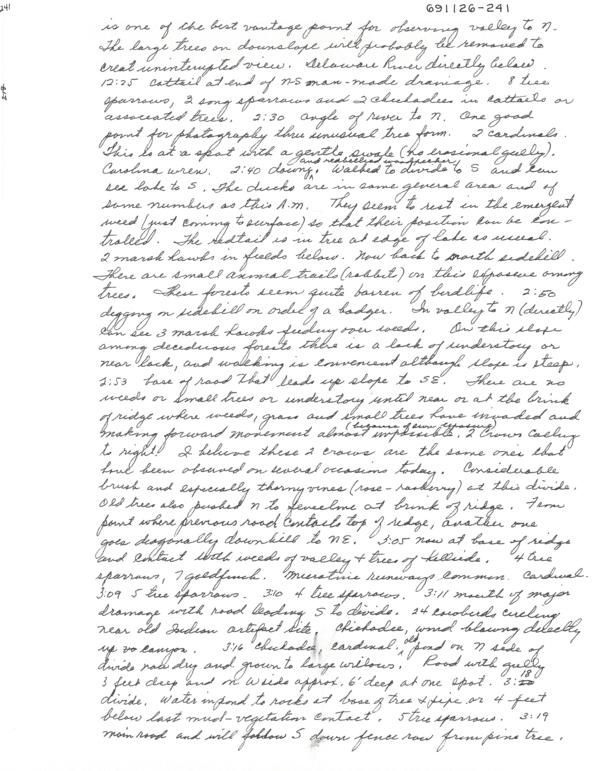 691126-241
241
is one of the best vantage point for observing valley to N.
The large trees on downslope will probably be removed to
creat uninterrupted view. Delaware River directly below.
12:25 cattail at end of N-S man-made drainage. 8 tree
sparrows, 2 song sparrows and 2 chickadees in cattails or
associated trees. 2:30 angle of river to N. One good
point for photography thru unusual tree form. 2 cardinals.
This is at a spot with a gentle swale (no erosional gully).
Carolina wren. 2:40 downy, and redbellied woodpecker, Walked to divide to S and can
see lake to S. The ducks are in same general area and of
same numbers as this A.M. They seem to rest in the emergent
weed (just coming to surface) so that their position can be con-
trolled. The redtail is in tree at edge of lake as usual.
2 marsh hawks in fields below. Now back to north sidehill.
There are small animal trails (rabbit) on this exposure among
trees. These forests seem quite barren of birdlife. 2:50
digging on sidehill on order of a badger. In valley to N (directly)
can see 3 marsh hawks feeding over weeds. On this slope
among deciduous forests there is a lack of understory or
near lack, and walking is convenient although slope is steep.
2:53 base of road that leads up slope to SE. There are no
weeds or small trees or understory until near or at the brink
of ridge where weeds, grass and small trees have invaded and
making forward movement almost impossible. 2 Crows calling
to right. I believe these 2 crows are the same ones that
have been observed on several occasions today. Considerable
brush and especially thorny vines (rose - rasberry) at this divide.
Old trees also pushed N to fenceline at brink of ridge. From
point where previous road contacts top of ridge, another one
goes diagonally downhill to NE. 3:05 now at base of ridge
and contact with weeds of valley & trees of hillside. 4 tree
sparrows, 7 goldfinch. Microtine runways common. Cardinal.
3:09 5 tree sparrows. 3:10 4 tree sparrows. 3:11 mouth of major
drainage with road leading S to divide. 24 cowbirds circling
near old Indian artifact site. Chickadee, wind blowing directly
up canyon. 3:16 chickadee, cardinal, old pond on N side of
divide now dry and grown to large willows. Road with gully
3 feet deep and on W side approx. 6' deep at one spot. 3:18
divide. Water in pond to rocks at base of tree & pipe or 4 feet
below last mud-vegetation contact. 5 tree sparrows. 3:19
main road and will follow S down fence row from pine tree.